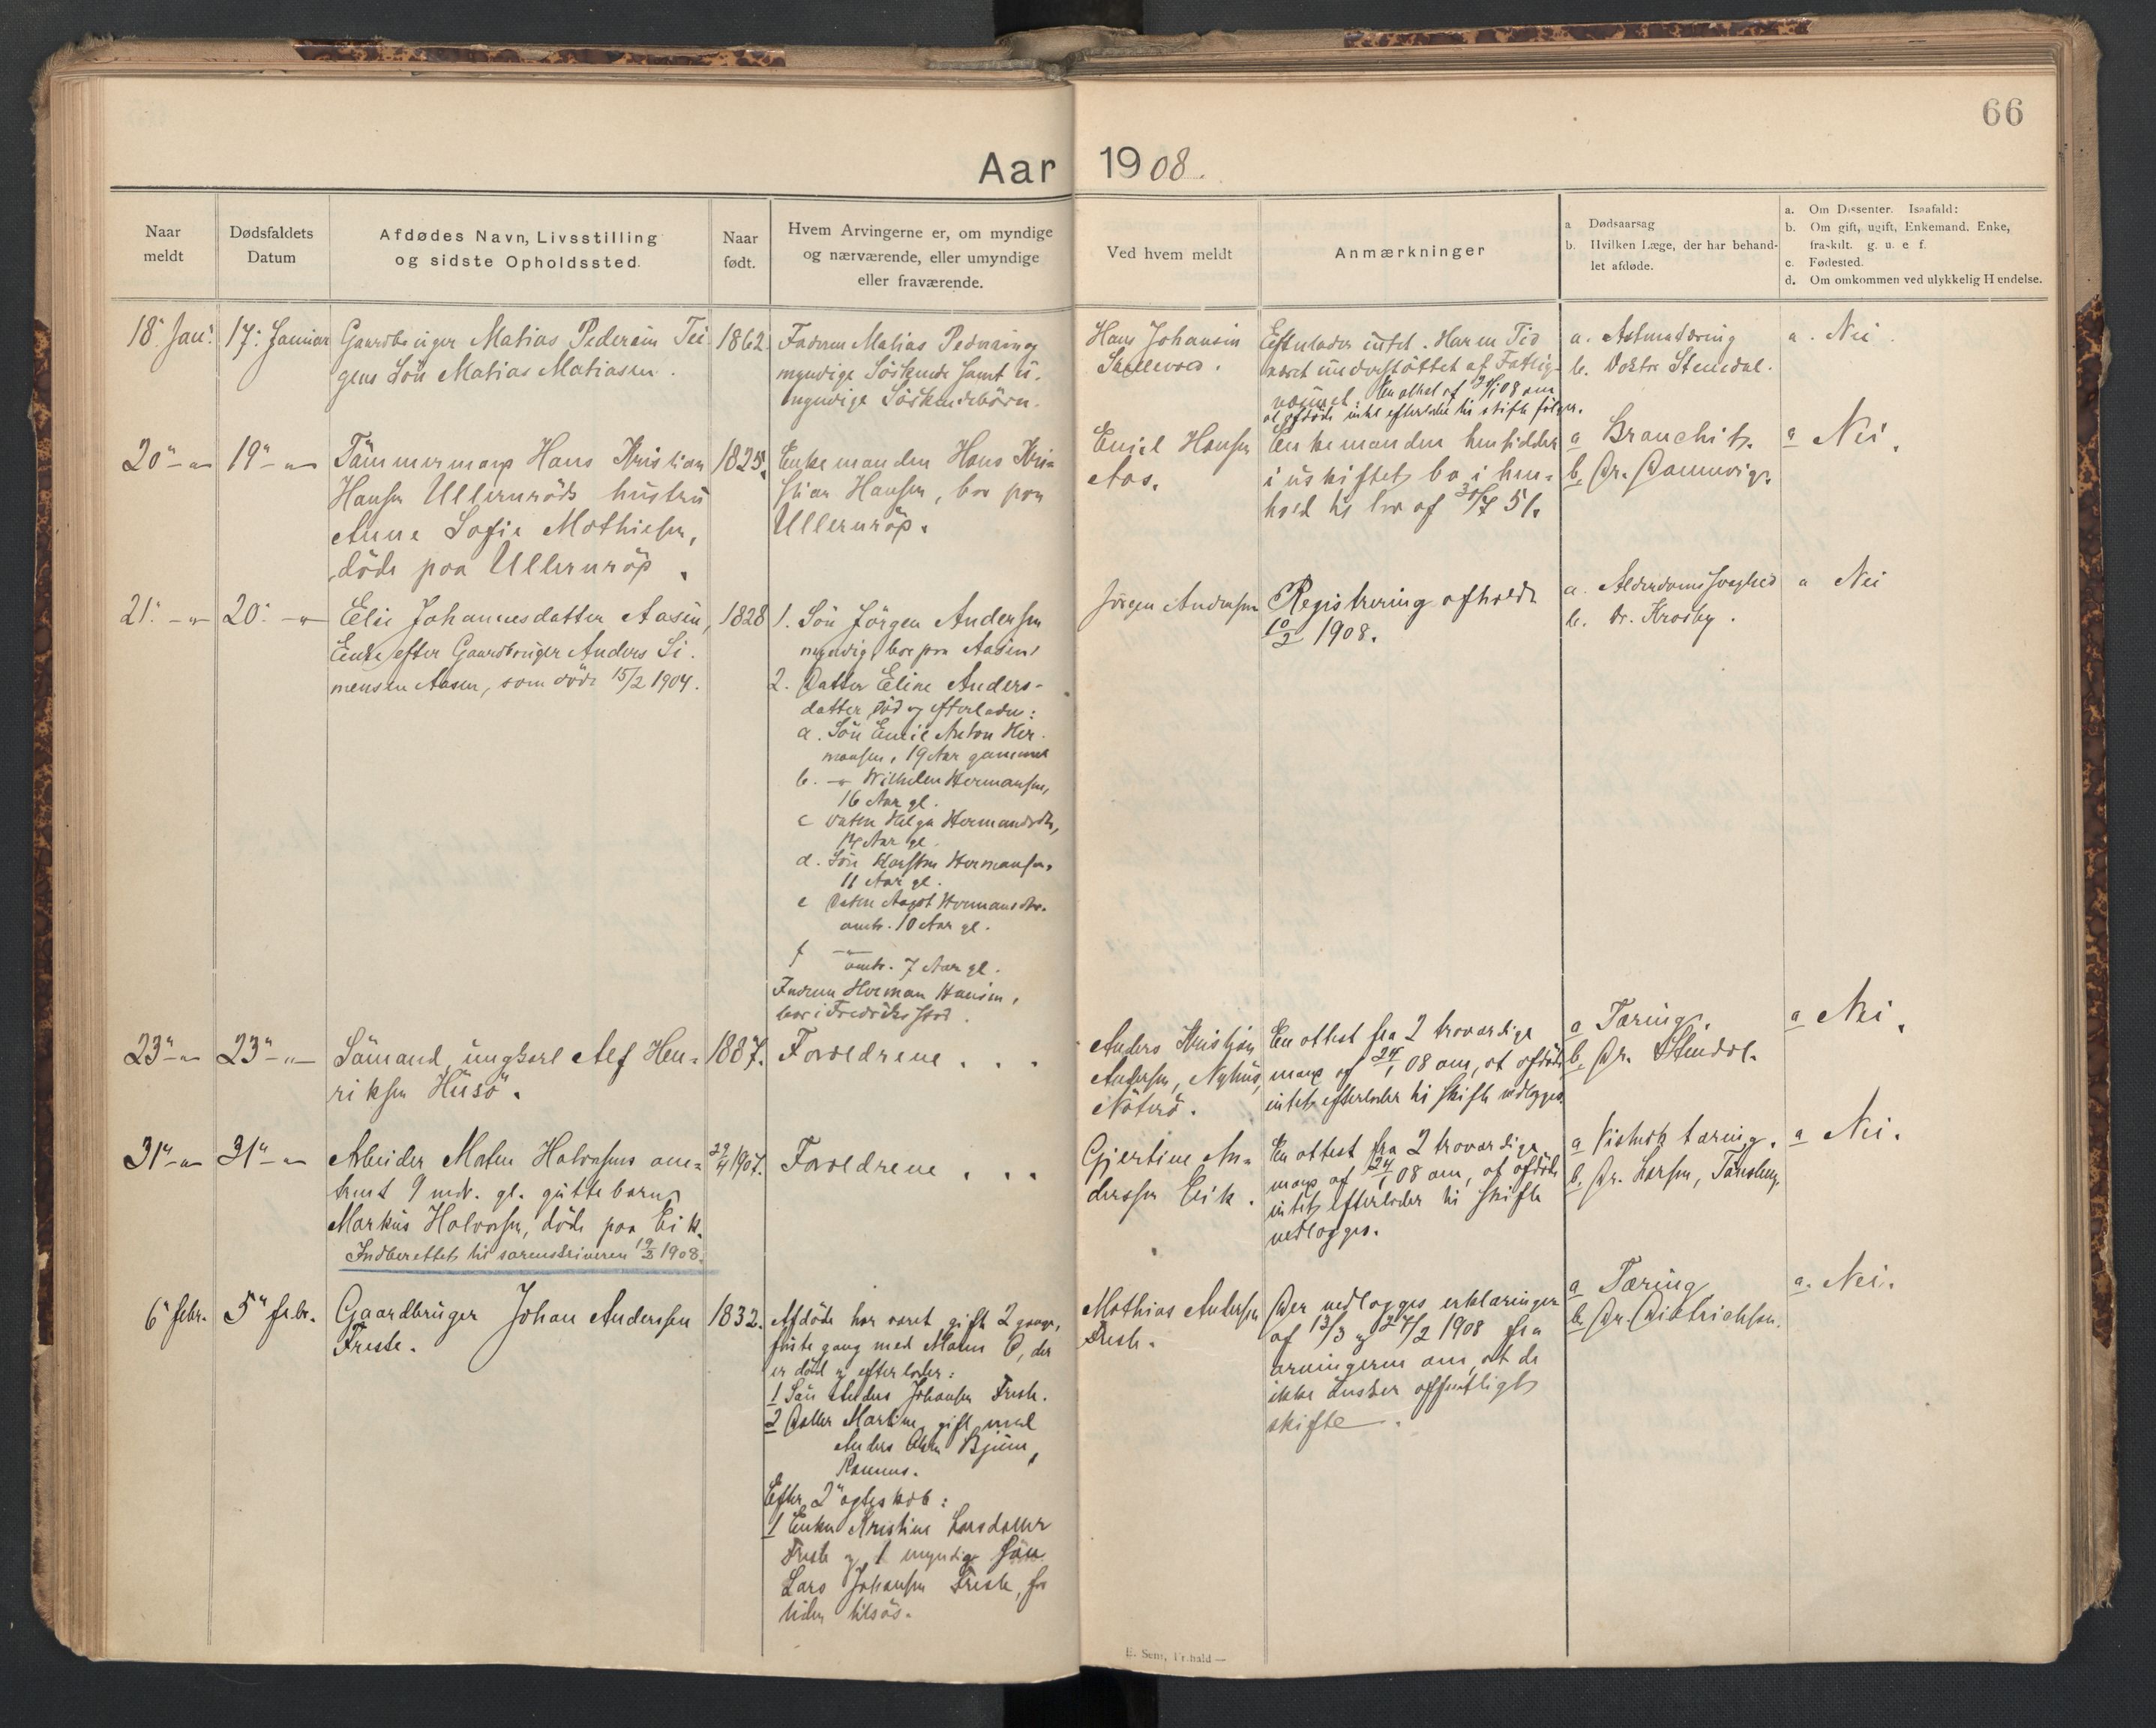 66
Aar 1908.
Naar meldt
Dødsfaldets Datum
Afdødes Navn, Livsstilling
og sidste Opholdssted.
Naar født.
Hvem Arvingerne er, om myndige
og nærværende, eller umyndige
eller fraværende.
Ved hvem meldt
Anmærkninger
a Dødsaarsag
b. Hvilken Læge, der har behand-
let afdøde.
a. Om Dissenter. Isaafald:
b. Om gift, ugift, Enkemand. Enke,
fraskilt. g. u. e f.
c. Fødested.
d. Om omkommen ved ulykkelig Hendelse.
18. Jan.
17. Januar
Gaardbruger Matias Pedersen Tei
gens Sön Matias Matiasen.
1862
Faderen Matias Pedersen og
myndige Söskende samt u.
myndige Söskendebörn.
Hans Johansen
Efterlader intet. Har en Tid
været understöttet af Fattig
væsenet. En attest af 08 om
at afdöde intet efterlader til skifte följer.
a. Astmatæring
b. Doktor Stendal.
a. Nei.
20"-"-
19"-"-
Tömmermand Hans Kristian
Hansen Ullernröds hustru
Anne Sofie Mathiesen,
döde paa Ulleröd.
1825.
Enkemanden Hans Kri-
stian Hansen, bor paa
Ulleröd.
Emil Hansen
Aas.
Enkemanden hensidder
i uskiftet bo i hen-
hold til lov af 30/7 51.
a Bronchit.
b. Dr.
a Nei.
21. -"-
20. -"-
Elen Johannesdatter Aasen,
Enke efter Gaardbruger Anders Si.
mensen Aasen, som döde 15/2 1904.
1828
1. Sön Jörgen Andersen
myndig, bor paa Aasen,
2. Datter Eline Anders-
datter, död og efterlader:
a. Sön Emil Anton Her.
mansen, 19 Aar gammel
b. -"- Wilhelm Hermansen,
16 Aar gl.
c Datter Helga Hermansdtr,
14 Aar gl.
d. Sön Karsten Hermansen,
11 Aar gl.
e Datter Aagot Hermansdtr.
omtr. 10 Aar gl.
f -"- omtr. 7 Aar gl.
Faderen Herman Hansen,
bor i Fredriksstad.
Jörgen Andersen
Registrering afholdt
10/2 1908.
a. Alderdomssvaghed
b. Dr. Krosby.
a Nei
23"-"-
23"-"-
Sömand, ungkarl Alf Hen-
riksen Husö.
1887.
Forældrene . . .
Anders Kristian
Andersen, Nyhus,
Nöterö.
En attest fra 2 troværdige
mænd af 24/1 08 om, at afdöde
intet efterlader til skifte vedlægges.
a Tæring.
b. Dr. Stendal.
a Nei.
31"-"-
31"-"-
Arbeider Maten Halvorsens om-
trent 9 mdr. gl. guttebarn
Markus Halvorsen, döde paa Eik.
Indberettet til sorenskriveren 19/2 1908.
29/4 1907.
Forældrene . . .
Gjertine An-
derssen Eik.
En attest fra 2 troværdige
mænd af 24/1 08 om, at afdöde
intet efterlader til skifte
vedlægges.
a tæring.
b. Dr. Larsen, Tönsberg
a Nei.
6" febr.
5" febr.
Gaardbruger Johan Anderssen
Freste.
1832.
Afdöde har været gift 2 gange,
förste gang med Maren O, der
er död og efterlader:
1 Sön Anders Johansen Freste.
2 Datter Martine, gift med
Anders Olsen Bjune,
Ramnes.
Efter 2" ægteskab:
1 Enken Kristine Larsdatter
Freste og 1 myndig sön
Lars Johansen Freste, for
tiden tilsös.
Mathias Andersen
Freste.
Der vedlægges erklæringer
af 13/3 og 27/2 1908 fra
arvingerne om, at de
ikke önsker offentligt
skifte.
a Tæring
b. Dr. Didrichsen.
a. Nei.
E. Sem, Fr.hald —